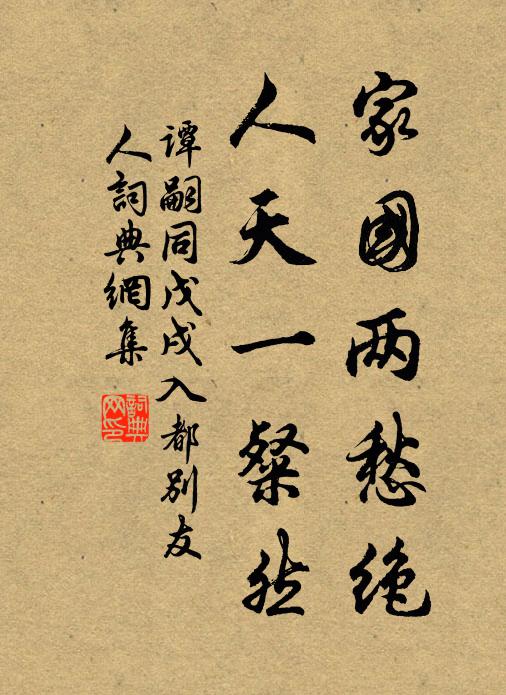 家國两愁绝
人天一粲然
譚嗣同戊戌入都别友
人詞典網集
詞典
网印